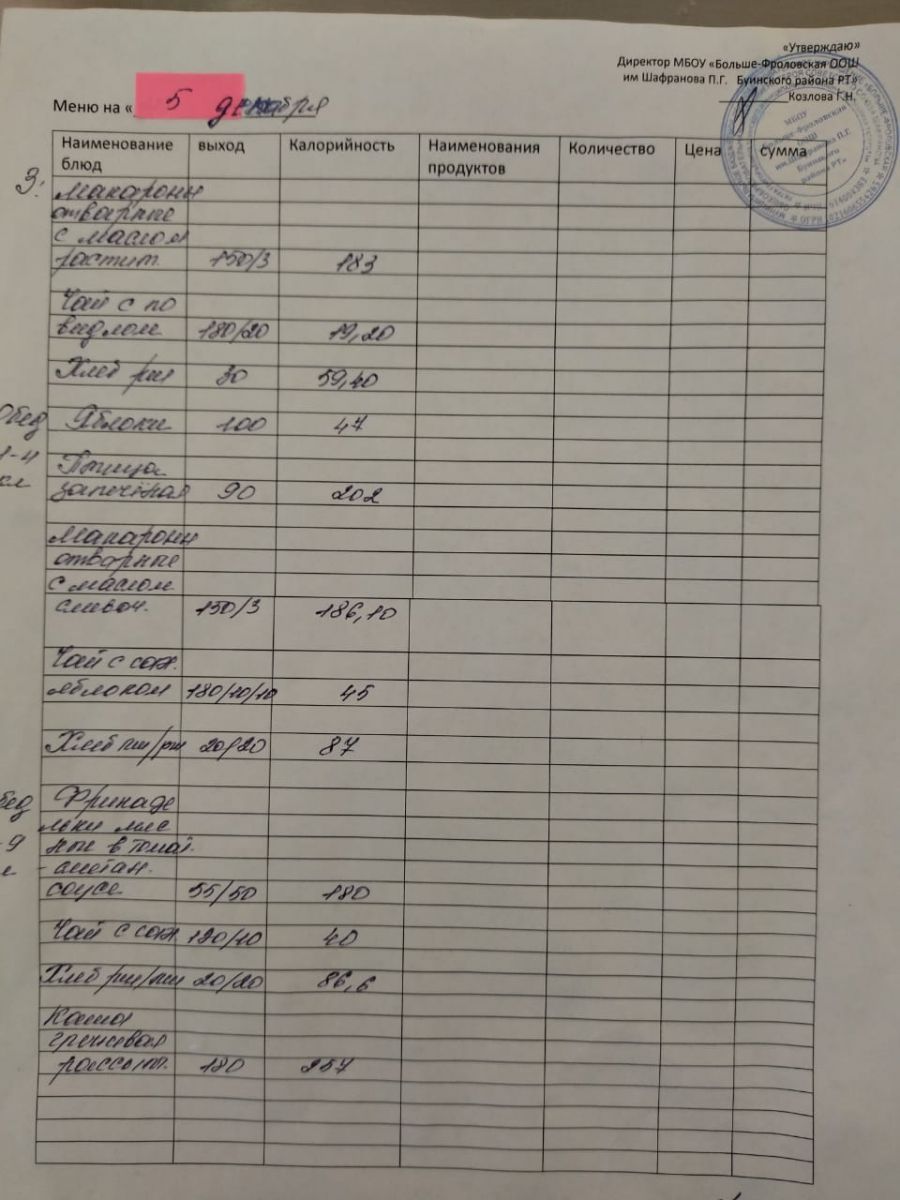 «Утверждаю»
Директор МБОУ «Больше-Фроловская ООШ
им Шафранова П.Г. Буинского района РТ»
Козлова Г.Н.
Меню на « 5 декабря
Наименование блюд выход Калорийность Наименования продуктов Количество Цена сумма
З.
Макароны
отварные
с маслом
растит. 150/3 183
Чай с по
видлом 180/20 19,20
Хлеб рж 30 59,40
Обед Яблоки 100 47
1-4
кл
Птица
запечёная 90 202
Макароны
отварные
с маслом
сливоч. 150/3 186,10
Чай с сах.
яблоком 180/10/10 45
Хлеб пш/рж 20/20 87
бед Фрикаде
льки мяс
-9 ные в томат.
- сметан.
соусе 55/50 180
Чай с сах 190/10 40
Хлеб рж/пш 20/20 86,6
Каша
гречневая
рассып. 180 257